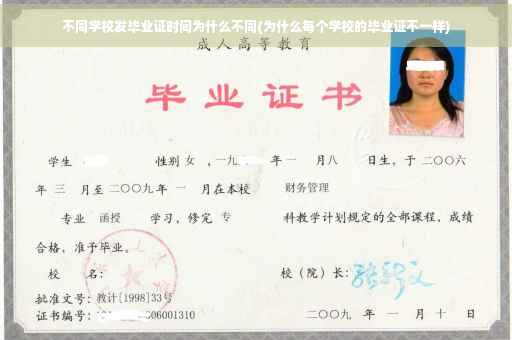 不同学校发毕业证时间为什么不同(为什么每个学校的毕业证不一样)
成人高等教育
毕业证书
学生 性别 女 ，一九 年 一 月八 日生，于 二〇〇六
年 三 月至 二〇〇九 年 一 月在本校 财务管理
专业 函授 学习，修完 专 科教学计划规定的全部课程，成绩
合格，准予毕业。
校 名： 校（院）长：
批准文号：教计[1998]33号
证书编号： 06001310 二〇〇九 年 一 月 十 日